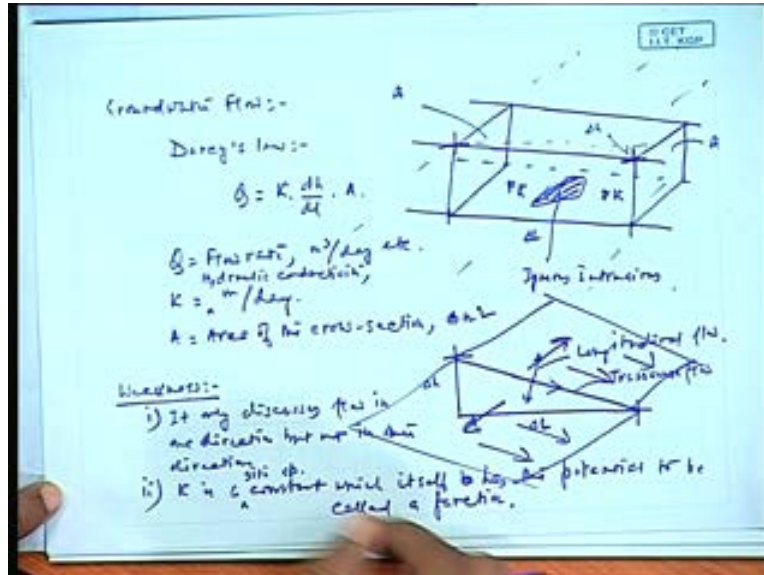 © CET
I.I.T. KGP
Groundwater Flow:-
Darcy's law:-
Q = K. dh/dl . A.
Q = Flow rate, m³/day etc.
Hydraulic conductivity,
K = m/day.
A = Area of the cross-section, m²
Weakness:-
i) It only discusses flow in
one direction but not in
direction
ii) K is a constant which itself has the potential to be
called a function.
A
Δh
A
K
K
Igneous Intrusions
Longitudinal flow.
Transverse flow
Δh
ΔL